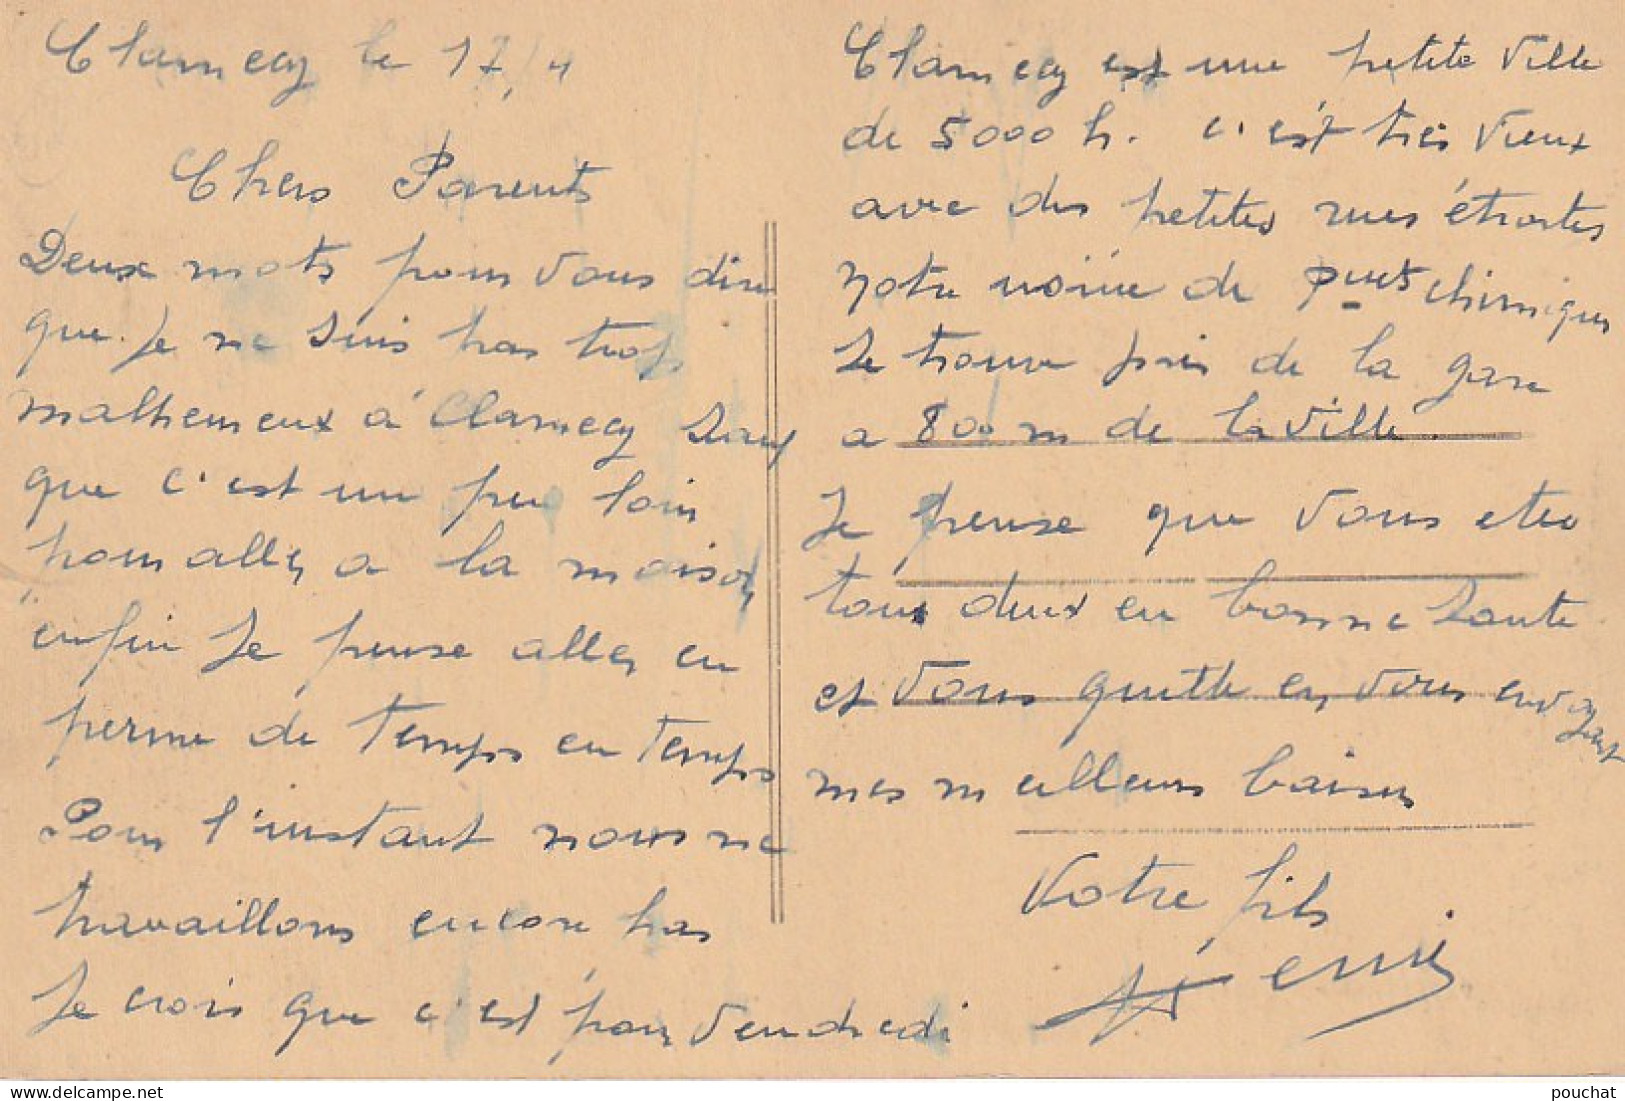 Clamecy le 17/4
Chers Parents
Deux mots pour vous dire
que je ne suis pas trop
malheureux à Clamecy sauf
que c'est un peu loin
pour aller a la maison
enfin je pense aller en
perme de temps en temps
Pour l'instant nous ne
travaillons encore pas
Je crois que c'est pour Vendredi
Clamecy est une petite Ville
de 5000 h. c'est très Vieux
avec des petites rues étroites
notre usine de Pduits chimiques
se trouve près de la gare
a 800 m de la Ville.
Je pense que Vous etes
tous deux en bonne sante
et Vous quitte en Vous envoyant
mes meilleurs baisers
Votre fils
Henri
pouchat